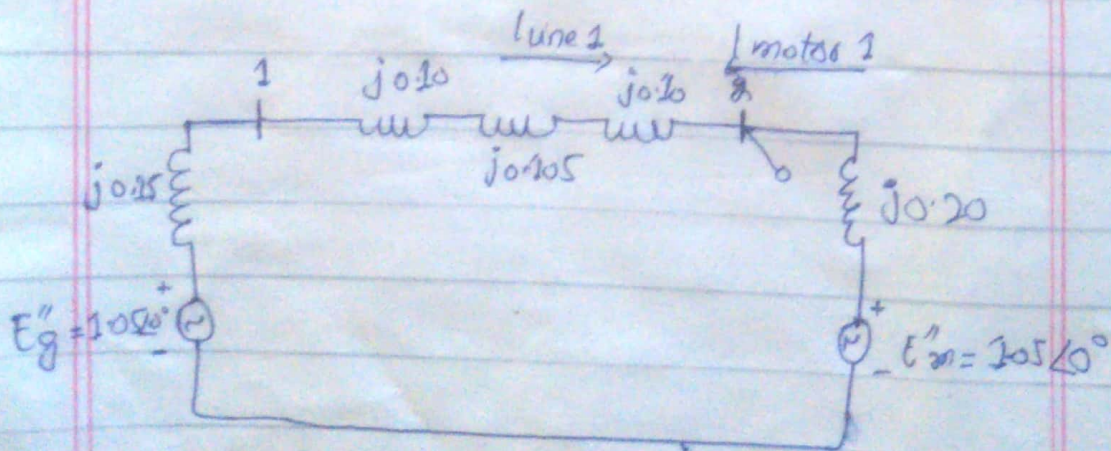 I line 1
I motor 1
1
j0.10
j0.10
2
j0.105
j0.15
j0.20
+
E"g = 1.05∠0°
-
+
E"m = 1.05∠0°
-